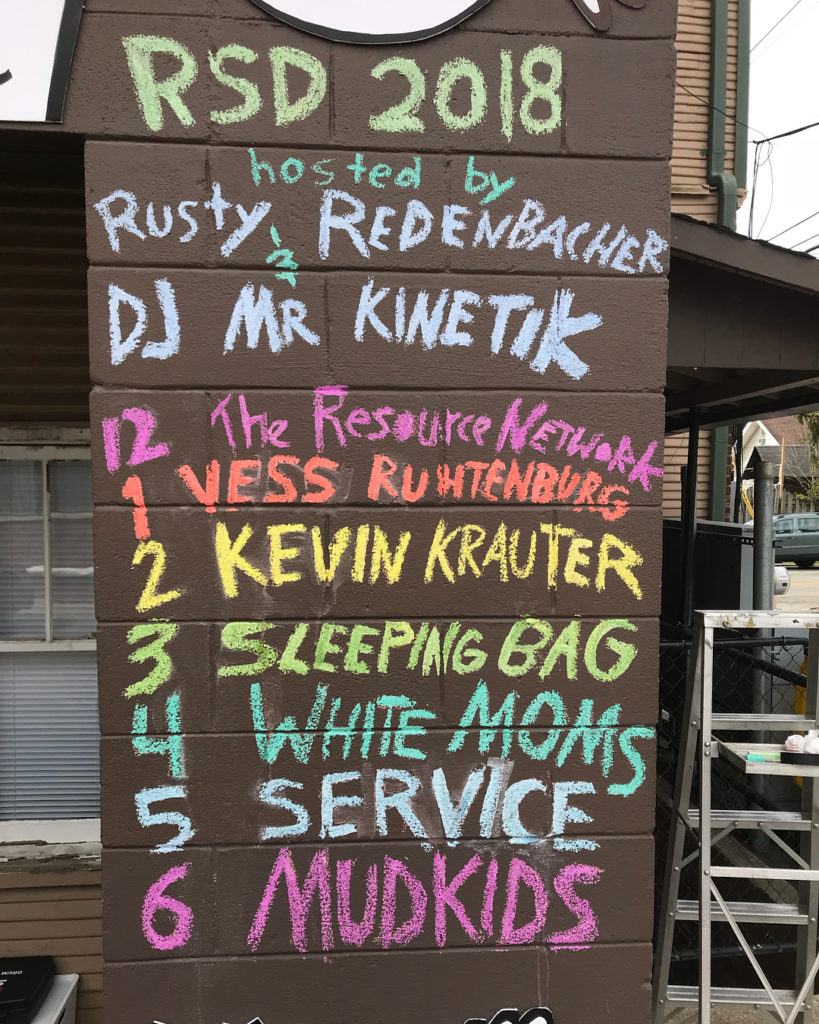 RSD 2018
hosted by
Rusty & REDENBACHER
DJ MR KINETIK
12 The Resource Network
1 VESS RUHTENBURG
2 KEVIN KRAUTER
3 SLEEPING BAG
4 WHITE MOMS
5 SERVICE
6 MUDKIDS
DRUM